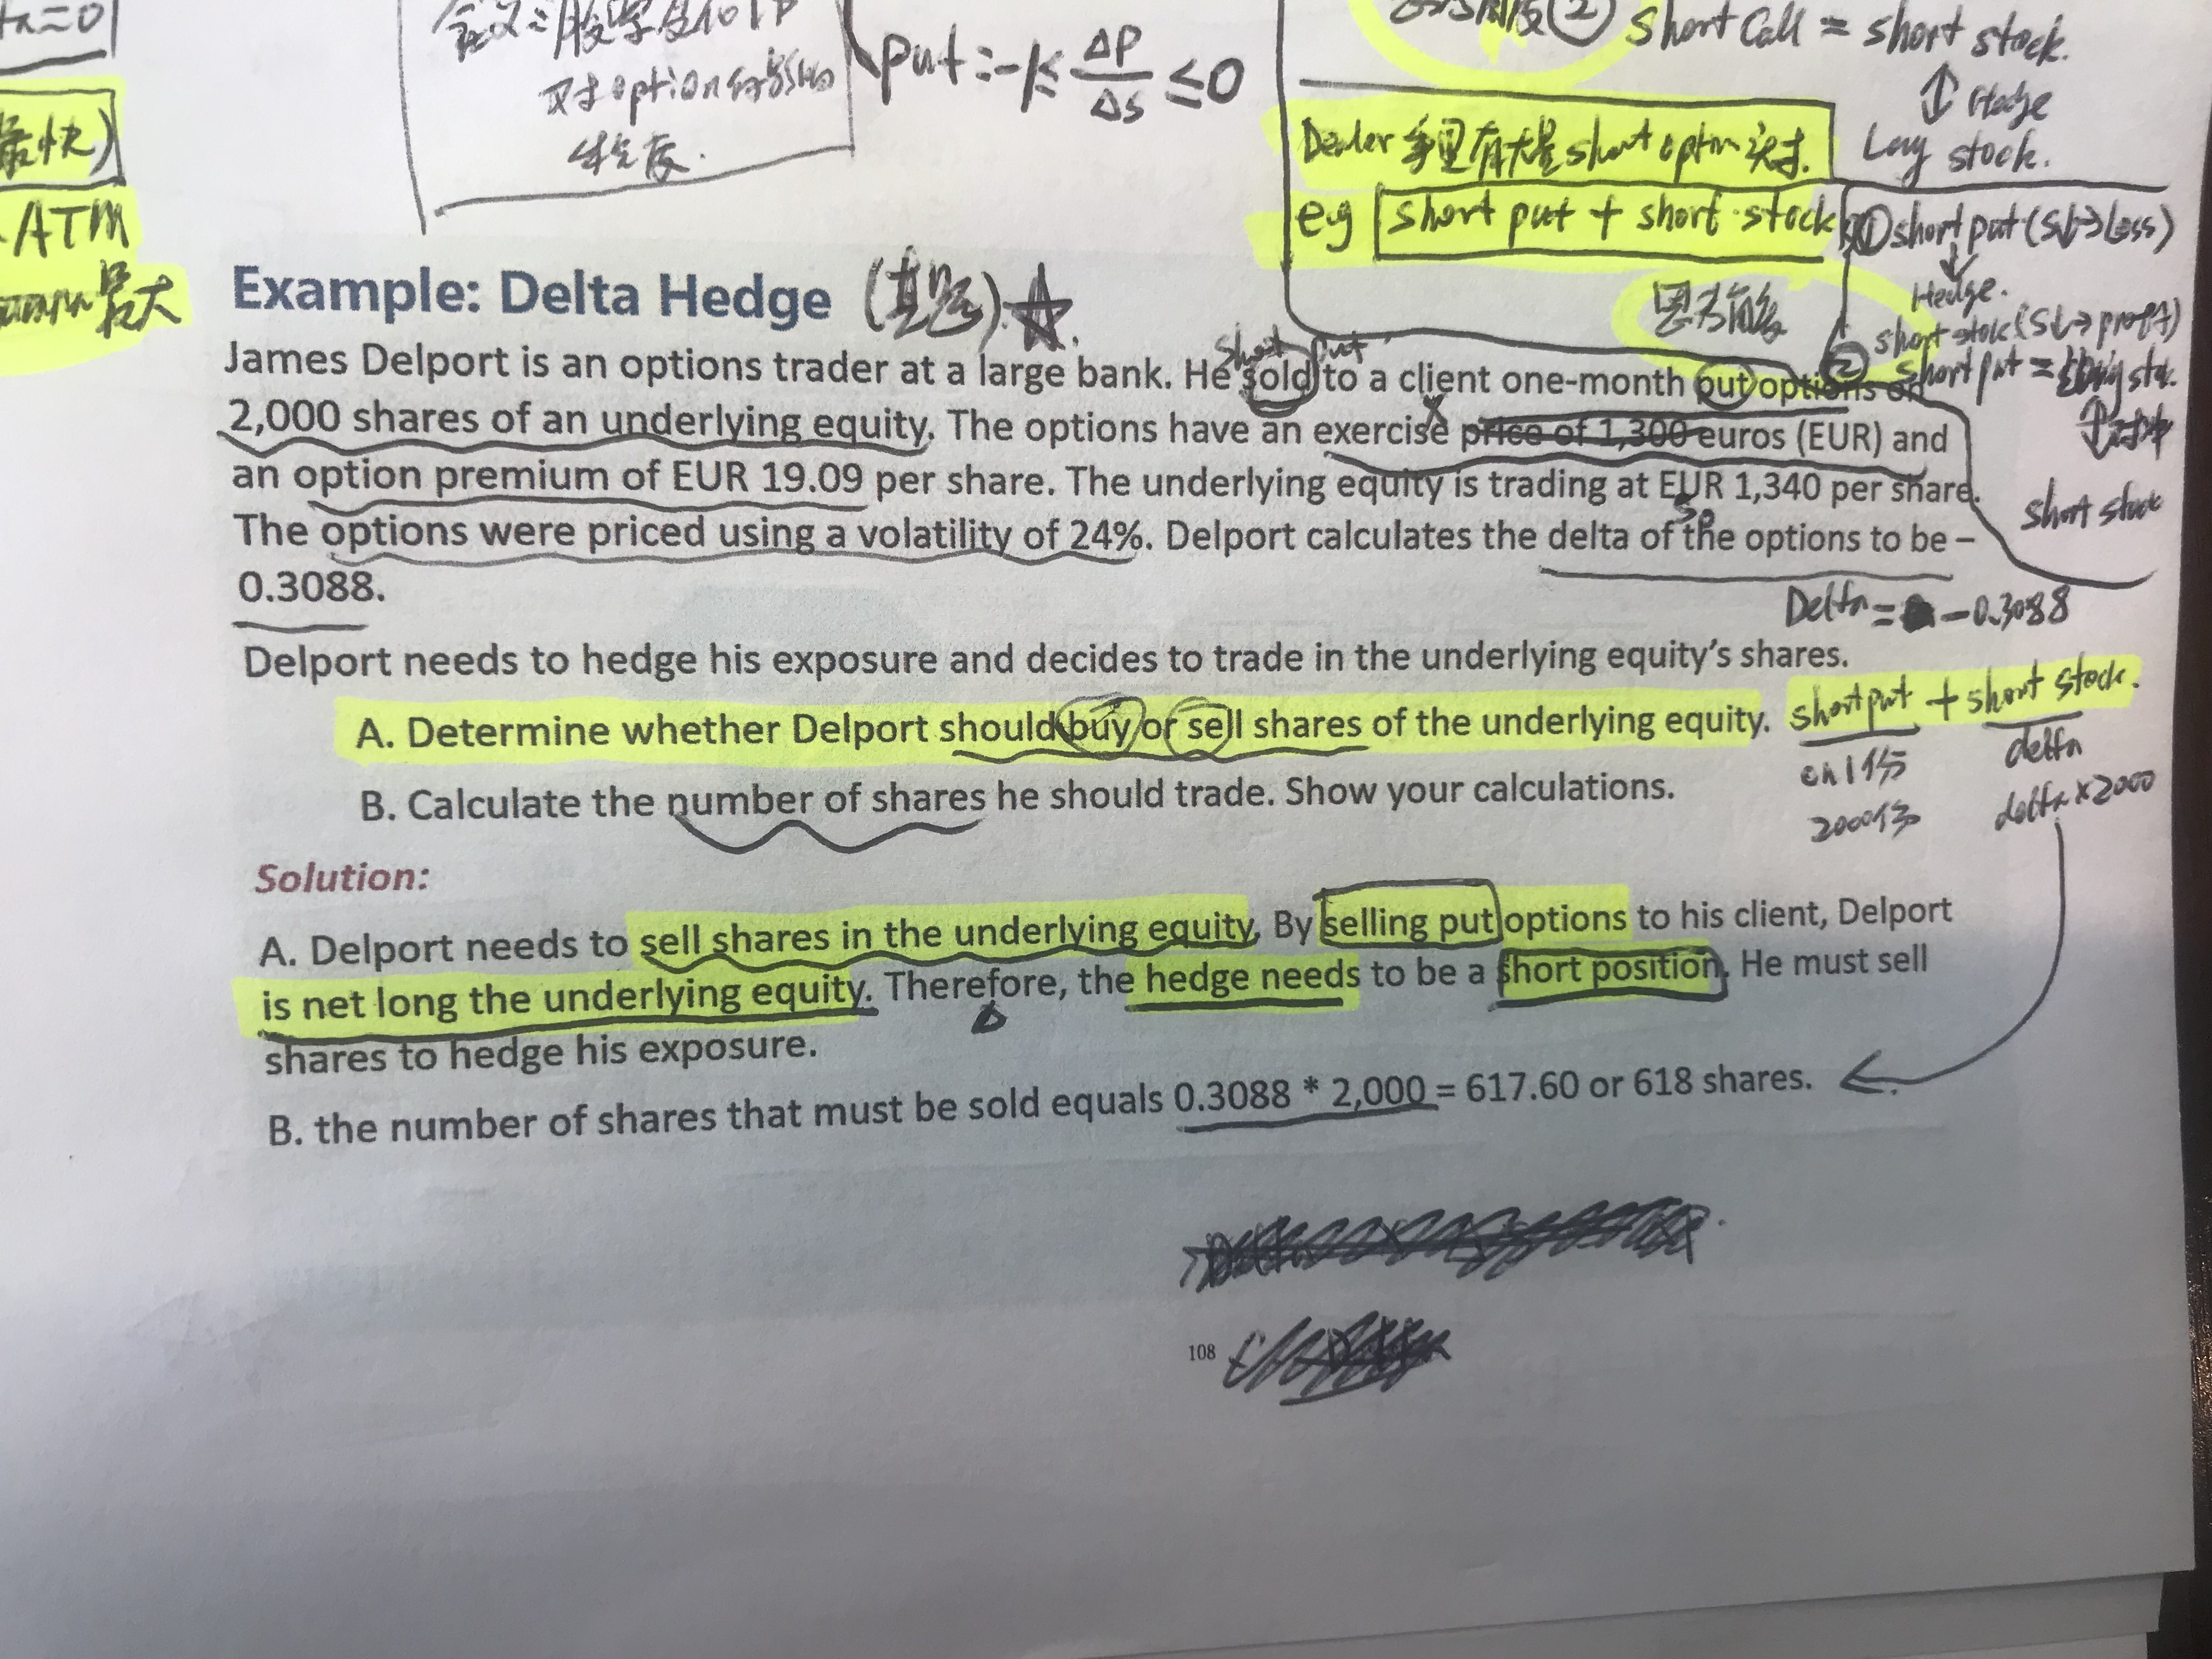 =0
put: -1≤ ΔP/ΔS ≤0
对option的影响
short call = short stock.
↕ Hedge
Long stock.
Dealer 手里有大量 short option 头寸.
e.g short put + short stock
①short put (S↓→Loss)
Hedge.
short stock (S↓→profit)
② short put = long stock.
short stock
ATM
最大
Example: Delta Hedge
short put
James Delport is an options trader at a large bank. He sold to a client one-month put options on
2,000 shares of an underlying equity. The options have an exercise price of 1,300 euros (EUR) and
X
an option premium of EUR 19.09 per share. The underlying equity is trading at EUR 1,340 per share.
S0
The options were priced using a volatility of 24%. Delport calculates the delta of the options to be –
0.3088.
Delta = -0.3088
Delport needs to hedge his exposure and decides to trade in the underlying equity's shares.
A. Determine whether Delport should buy or sell shares of the underlying equity.
short put + short stock.
1份 delta
2000份 delta×2000
B. Calculate the number of shares he should trade. Show your calculations.
Solution:
A. Delport needs to sell shares in the underlying equity. By selling put options to his client, Delport
is net long the underlying equity. Therefore, the hedge needs to be a short position. He must sell
shares to hedge his exposure.
B. the number of shares that must be sold equals 0.3088 * 2,000 = 617.60 or 618 shares.
108